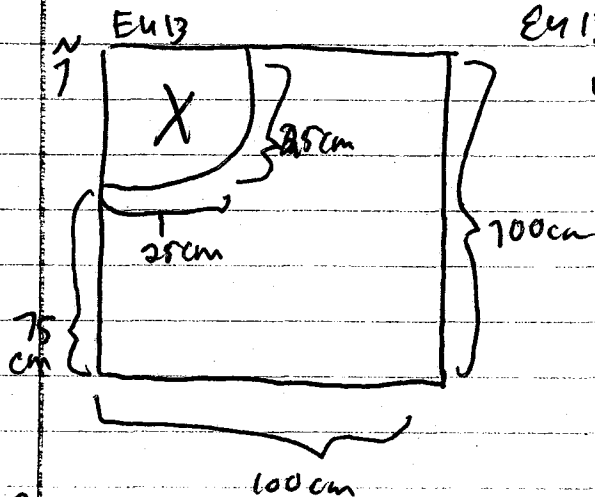 EU 13
EU 1
N
1
X
25cm
25cm
100cm
75
cm
100cm